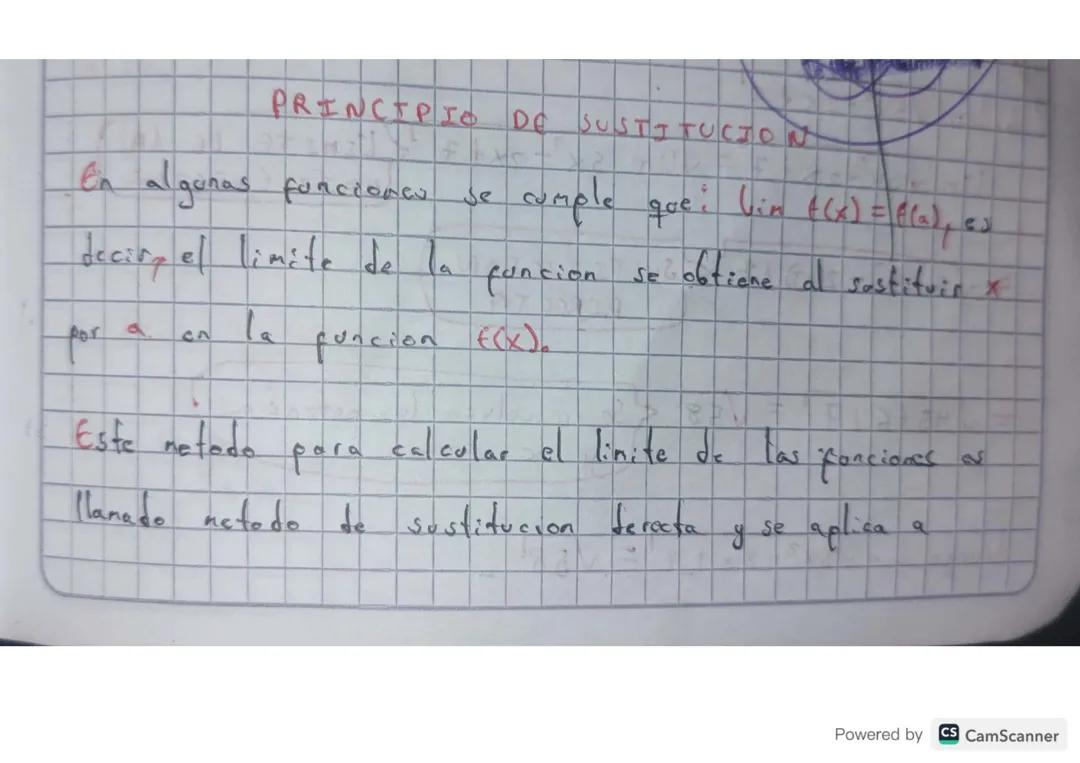 PRINCIPIO DE SUSTITUCION
En algunas funciones se cumple que: lim f(x) = f(a), es
decir, el limite de la funcion se obtiene al sustituir x
por a en la funcion f(x).
Este metodo para calcular el limite de las funciones es
llamado metodo de sustitucion derecta y se aplica a
Powered by CS CamScanner